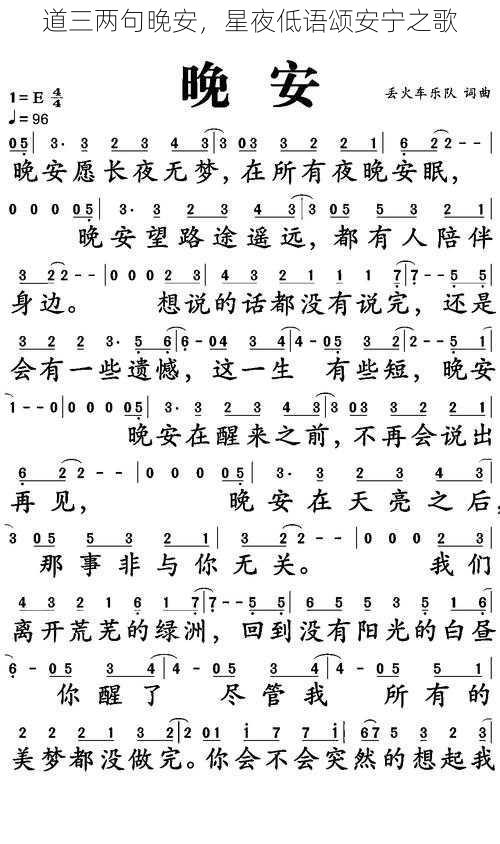 道三两句晚安，星夜低语颂安宁之歌
晚 安
1=E 4/4
丢火车乐队 词曲
♩=96
05| 3· 3 2 3 4 3|3 03 3 2 2 1| 6 22 - - |
晚安愿长夜无梦，在所有夜晚安眠，
0 0 0 05| 3· 3 2 3 4 3|3 05 5 3 2 1|
晚安望路途遥远，都有人陪伴
3 22 - - |0 0 0 2 3| 4 3 2 1 1 1 7|7 - - 5 5|
身边。 想说的话都没有说完，还是
3 2 2 3· 5 6|6 - 04 3 4|4 - 05 3 2|2 - - 5 5|
会有一些遗憾，这一生 有些短，晚安
1 - - 0|0 0 0 05| 3· 3 2 3 4 3|3 03 3 2 2 1|
晚安在醒来之前，不再会说出
6 2 2 - - | 0 0 0 05| 3· 3 2 3 4 3|
再见， 晚安在天亮之后，
3 05 5 3 2 1| 3 2 2 - - |0 0 0 2 3|
那事非与你无关。 我们
4 3 2 1 6 1 7|7 - - 5 5| 6 5 5 5 3 5 1 6|
离开荒芜的绿洲，回到没有阳光的白昼
6 - 0 5 3 4|4 - 0 5 3 4|4 - 0 5 5 4|
你醒了 尽管我 所有的
2 2 2 1 3 2 2|2 01 i 7 7 i| 67 5 3 2 3|
美梦都没做完。你会不会突然的想起我